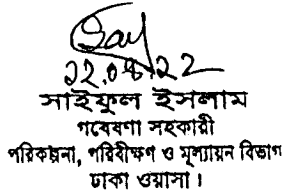 ২২.০৪.২২
সাইফুল ইসলাম
গবেষণা সহকারী
পরিকল্পনা, পরিবীক্ষণ ও মূল্যায়ন বিভাগ
ঢাকা ওয়াসা।